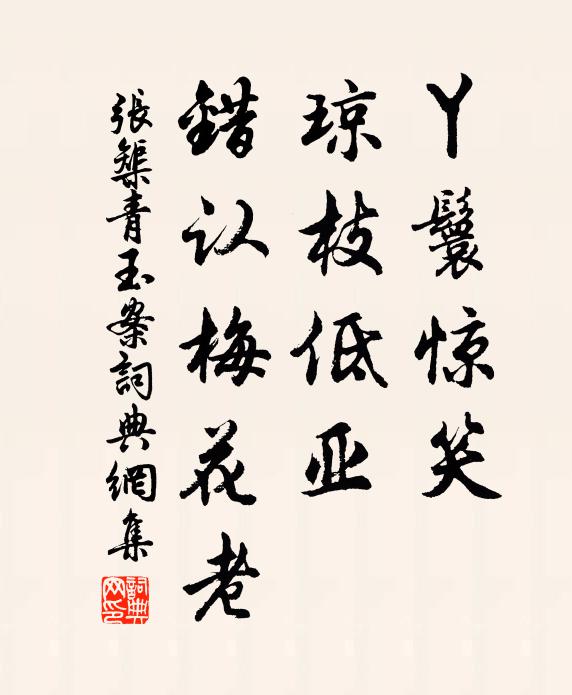 丫鬟惊笑
琼枝低亚
错认梅花老
張榘青玉案詞典網集
詞典网印